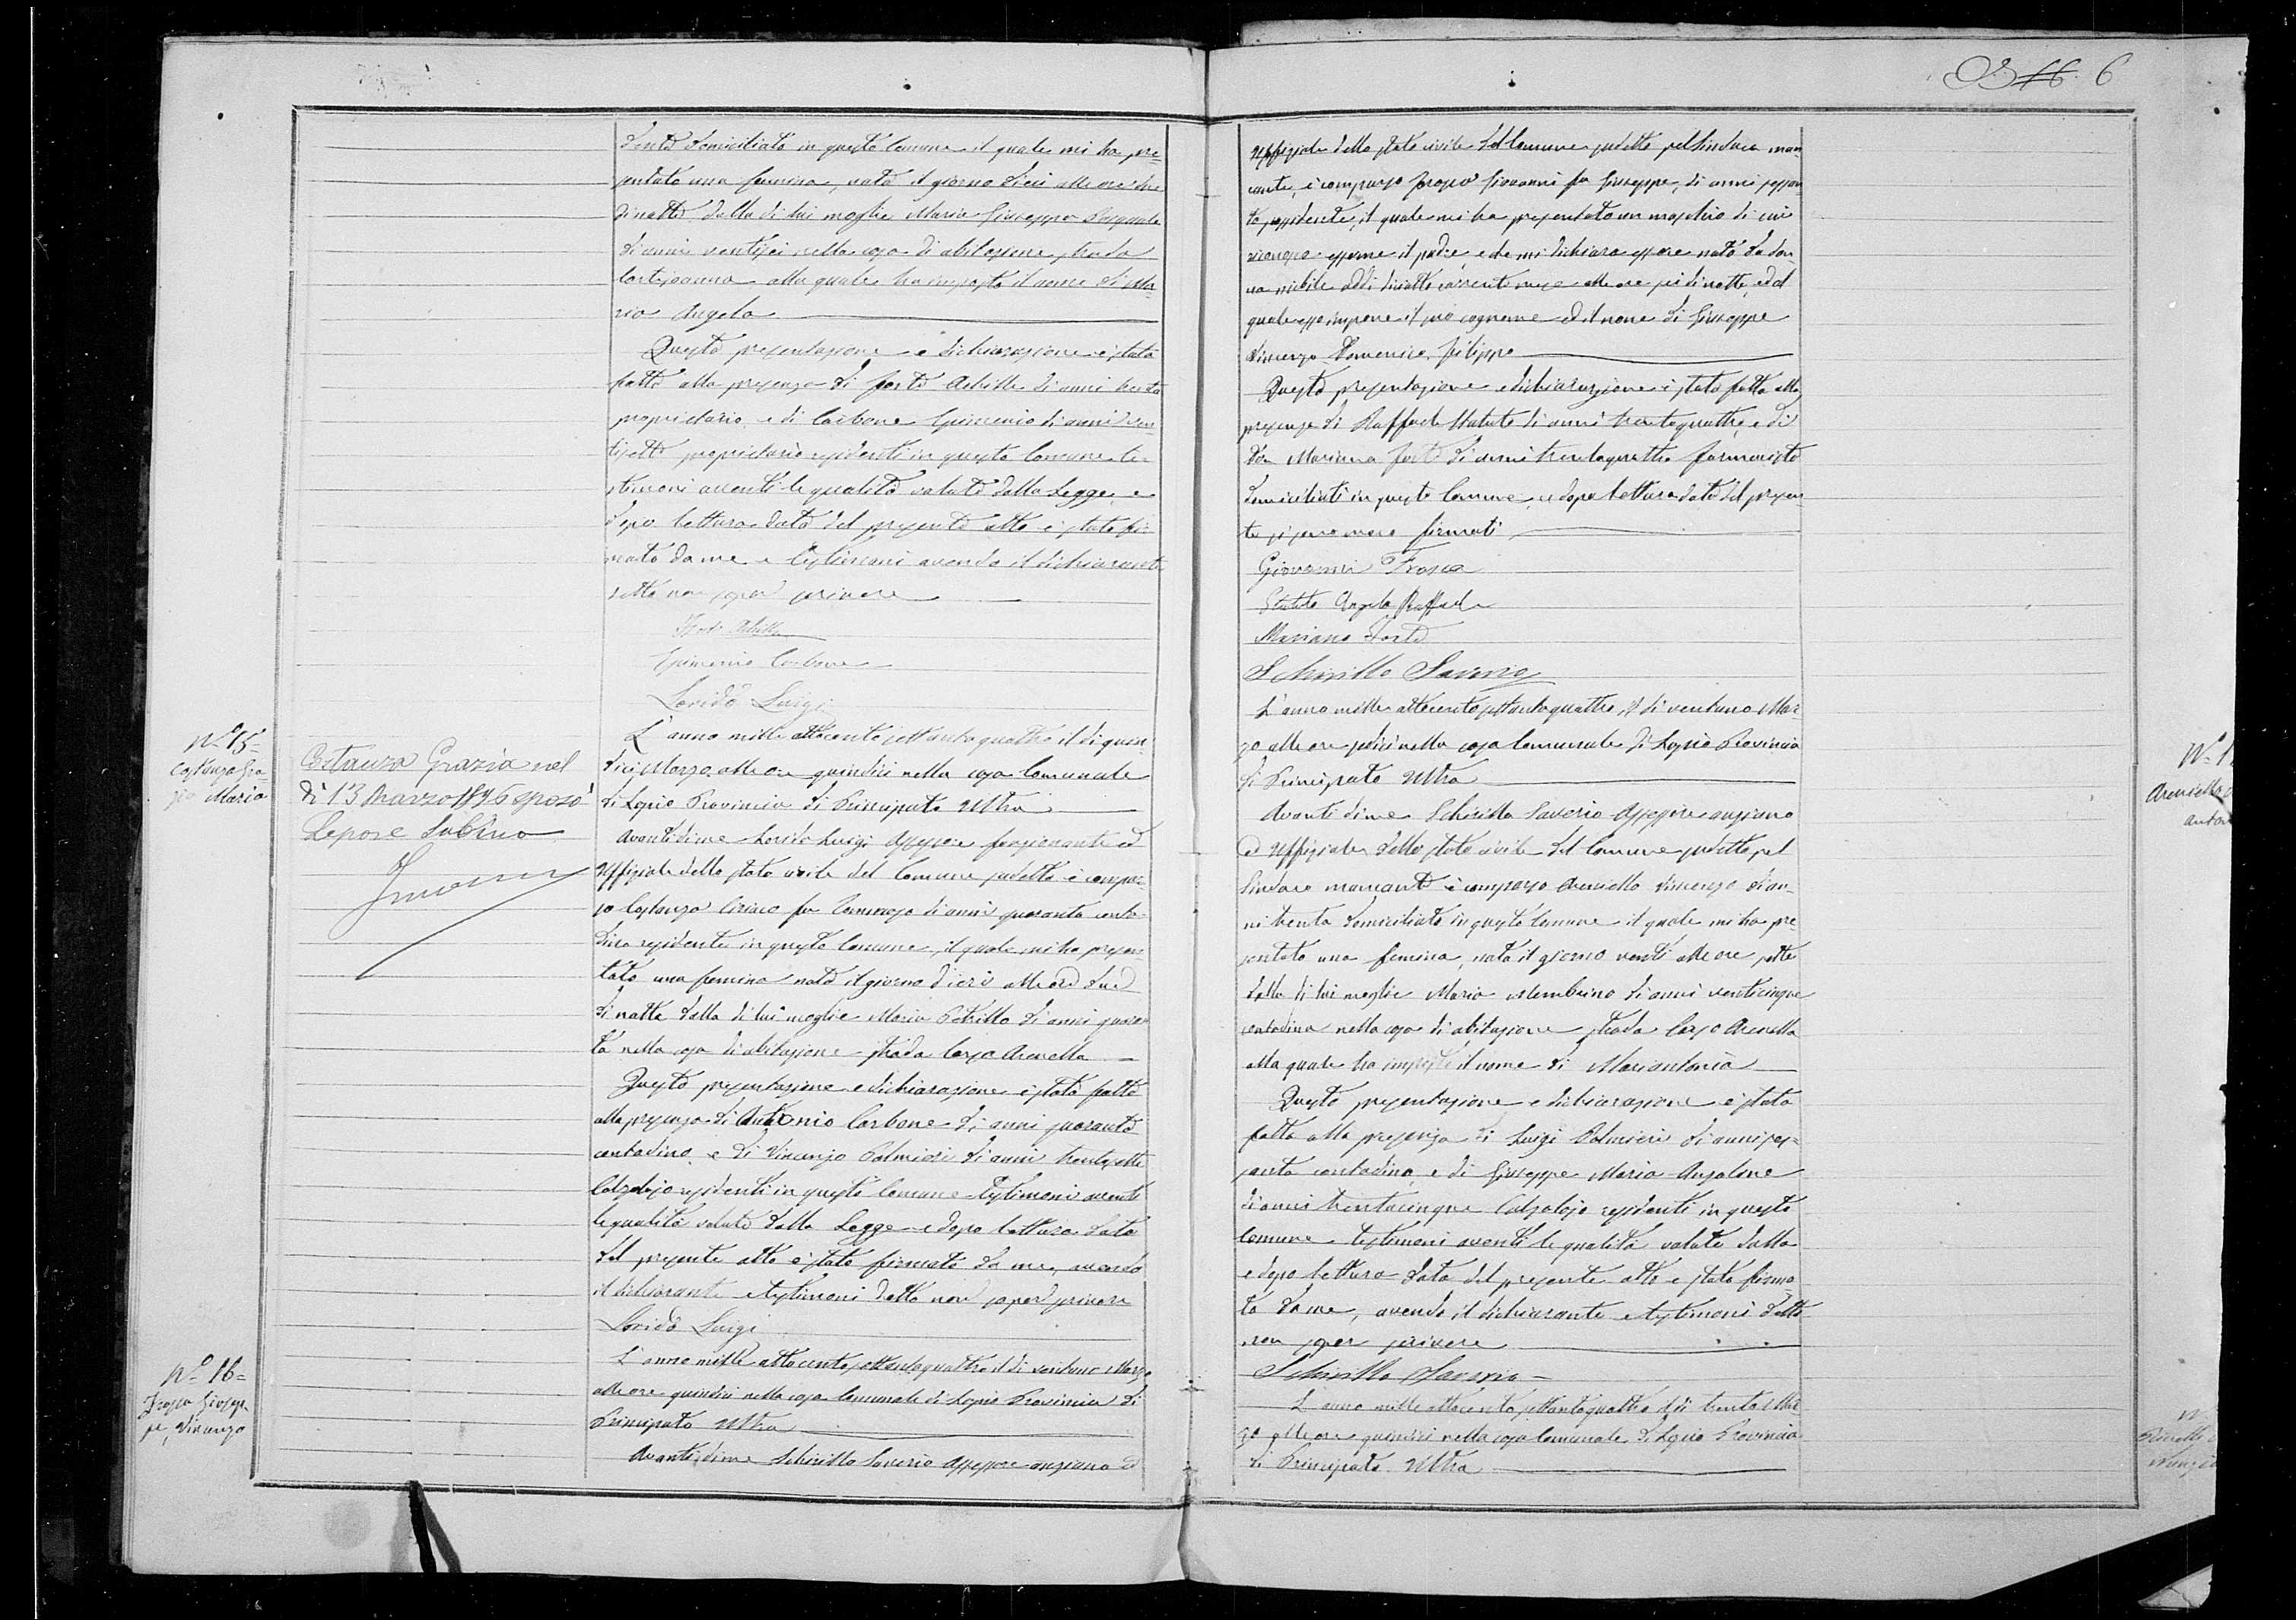 6
domiciliato in questo Comune il quale mi ha pre=
sentato una femina, nata il giorno dieci alle ore
di notte dalla di lui moglie Maria Giuseppa
di anni ventisei nella casa di abitazione strada
alla quale ha imposto il nome di Ma=
ria Angela
Questa presentazione e dichiarazione è stata
fatta alla presenza di Forte Achille di anni trenta
proprietario e di Carbone Epimenio di anni ven=
tisette proprietario residenti in questo Comune te=
stimoni aventi le qualità volute dalla Legge e
dopo lettura data del presente atto è stato fir=
mato da me e testimoni avendo il dichiarante
detto non saper scrivere
Forte Achille
Epimenio Carbone
Lorido Luigi
Nº 15=
Costanza Gra=
zia Maria
Costanza Grazia nel
dì 13 Marzo 1896 sposò
Lepore Sabino
L'anno mille ottocento settantaquattro il dì quin=
dici Marzo alle ore quindici nella casa Comunale
di Lapio Provincia di Principato Ultra
Avanti di me Lorido Luigi Assessore funzionante ed
Uffiziale dello stato civile del Comune sudetto è compar=
so Costanza Ciriaco fu Tommaso di anni quaranta conta=
dino residente in questo Comune, il quale mi ha presen=
tato una femina nata il giorno d'ieri alle ore due
di notte dalla di lui moglie Maria Petrillo di anni quaran
ta nella casa di abitazione strada Largo Arenella
Questa presentazione e dichiarazione è stata fatta
alla presenza di Antonio Carbone di anni quaranta
contadino e di Vincenzo Palmieri di anni trentasette
Calzolajo residenti in questo Comune testimoni aventi
le qualità volute dalla Legge e dopo lettura data
del presente atto è stato firmato da me, avendo
il dichiarante e testimoni detto non saper scrivere
Lorido Luigi
Nº 16=
Frosca Giusep=
pe, Vincenzo
L'anno mille ottocento settantaquattro il dì ventuno Marzo
alle ore quindici nella casa Comunale di Lapio Provincia di
Principato Ultra
Avanti di me Schirillo Saverio Assessore anziano ed
Uffiziale dello stato civile del Comune sudetto pel Sindaco man=
cante, è comparso Frosca Giovanni fu Giuseppe, di anni sessan
ta possidente, il quale mi ha presentato un maschio di cui
riconosce esserne il padre, e che mi dichiara essere nato da don
na nubile addì diciotto corrente mese alle ore sei di notte, ed al
quale esso impone il suo cognome ed il nome di Giuseppe
Vincenzo Domenico Filippo
Questa presentazione e dichiarazione è stata fatta alla
presenza di Raffaele Statuto di anni trentaquattro, e di
Don Mariano Forte di anni trentaquattro farmacista
domiciliati in questo Comune, e dopo lettura data del presen=
te si sono meco firmati
Giovanni Frosca
Statuto Angelo Raffaele
Mariano Forte
Schirillo Saverio
L'anno mille ottocento settantaquattro, il dì ventuno Mar=
zo alle ore sedici nella casa Comunale di Lapio Provincia
di Principato Ultra
Avanti di me Schirillo Saverio Assessore anziano
ed Uffiziale dello stato civile del Comune sudetto pel
Sindaco mancante è comparso Arenella Vincenzo di an=
ni trenta domiciliato in questo Comune il quale mi ha pre
sentato una femina, nata il giorno venti alle ore sette
dalla di lui moglie Maria Membrino di anni venticinque
contadina nella casa di abitazione strada Largo Arenella
alla quale ha imposto il nome di Mariantonia
Questa presentazione e dichiarazione è stata
fatta alla presenza di Luigi Palmieri di anni ses=
santa contadino, e di Giuseppe Maria Anzalone
di anni trentacinque Calzolajo residenti in questo
Comune testimoni aventi le qualità volute dalla
e dopo lettura data del presente atto è stato firma
to da me, avendo il dichiarante e testimoni detto
non saper scrivere
Schirillo Saverio
L'anno mille ottocento settantaquattro il dì trenta Mar
zo alle ore quindici nella casa Comunale di Lapio Provincia
di Principato Ultra
Nº 1
Arenella
Anton
Nº
Nunzia